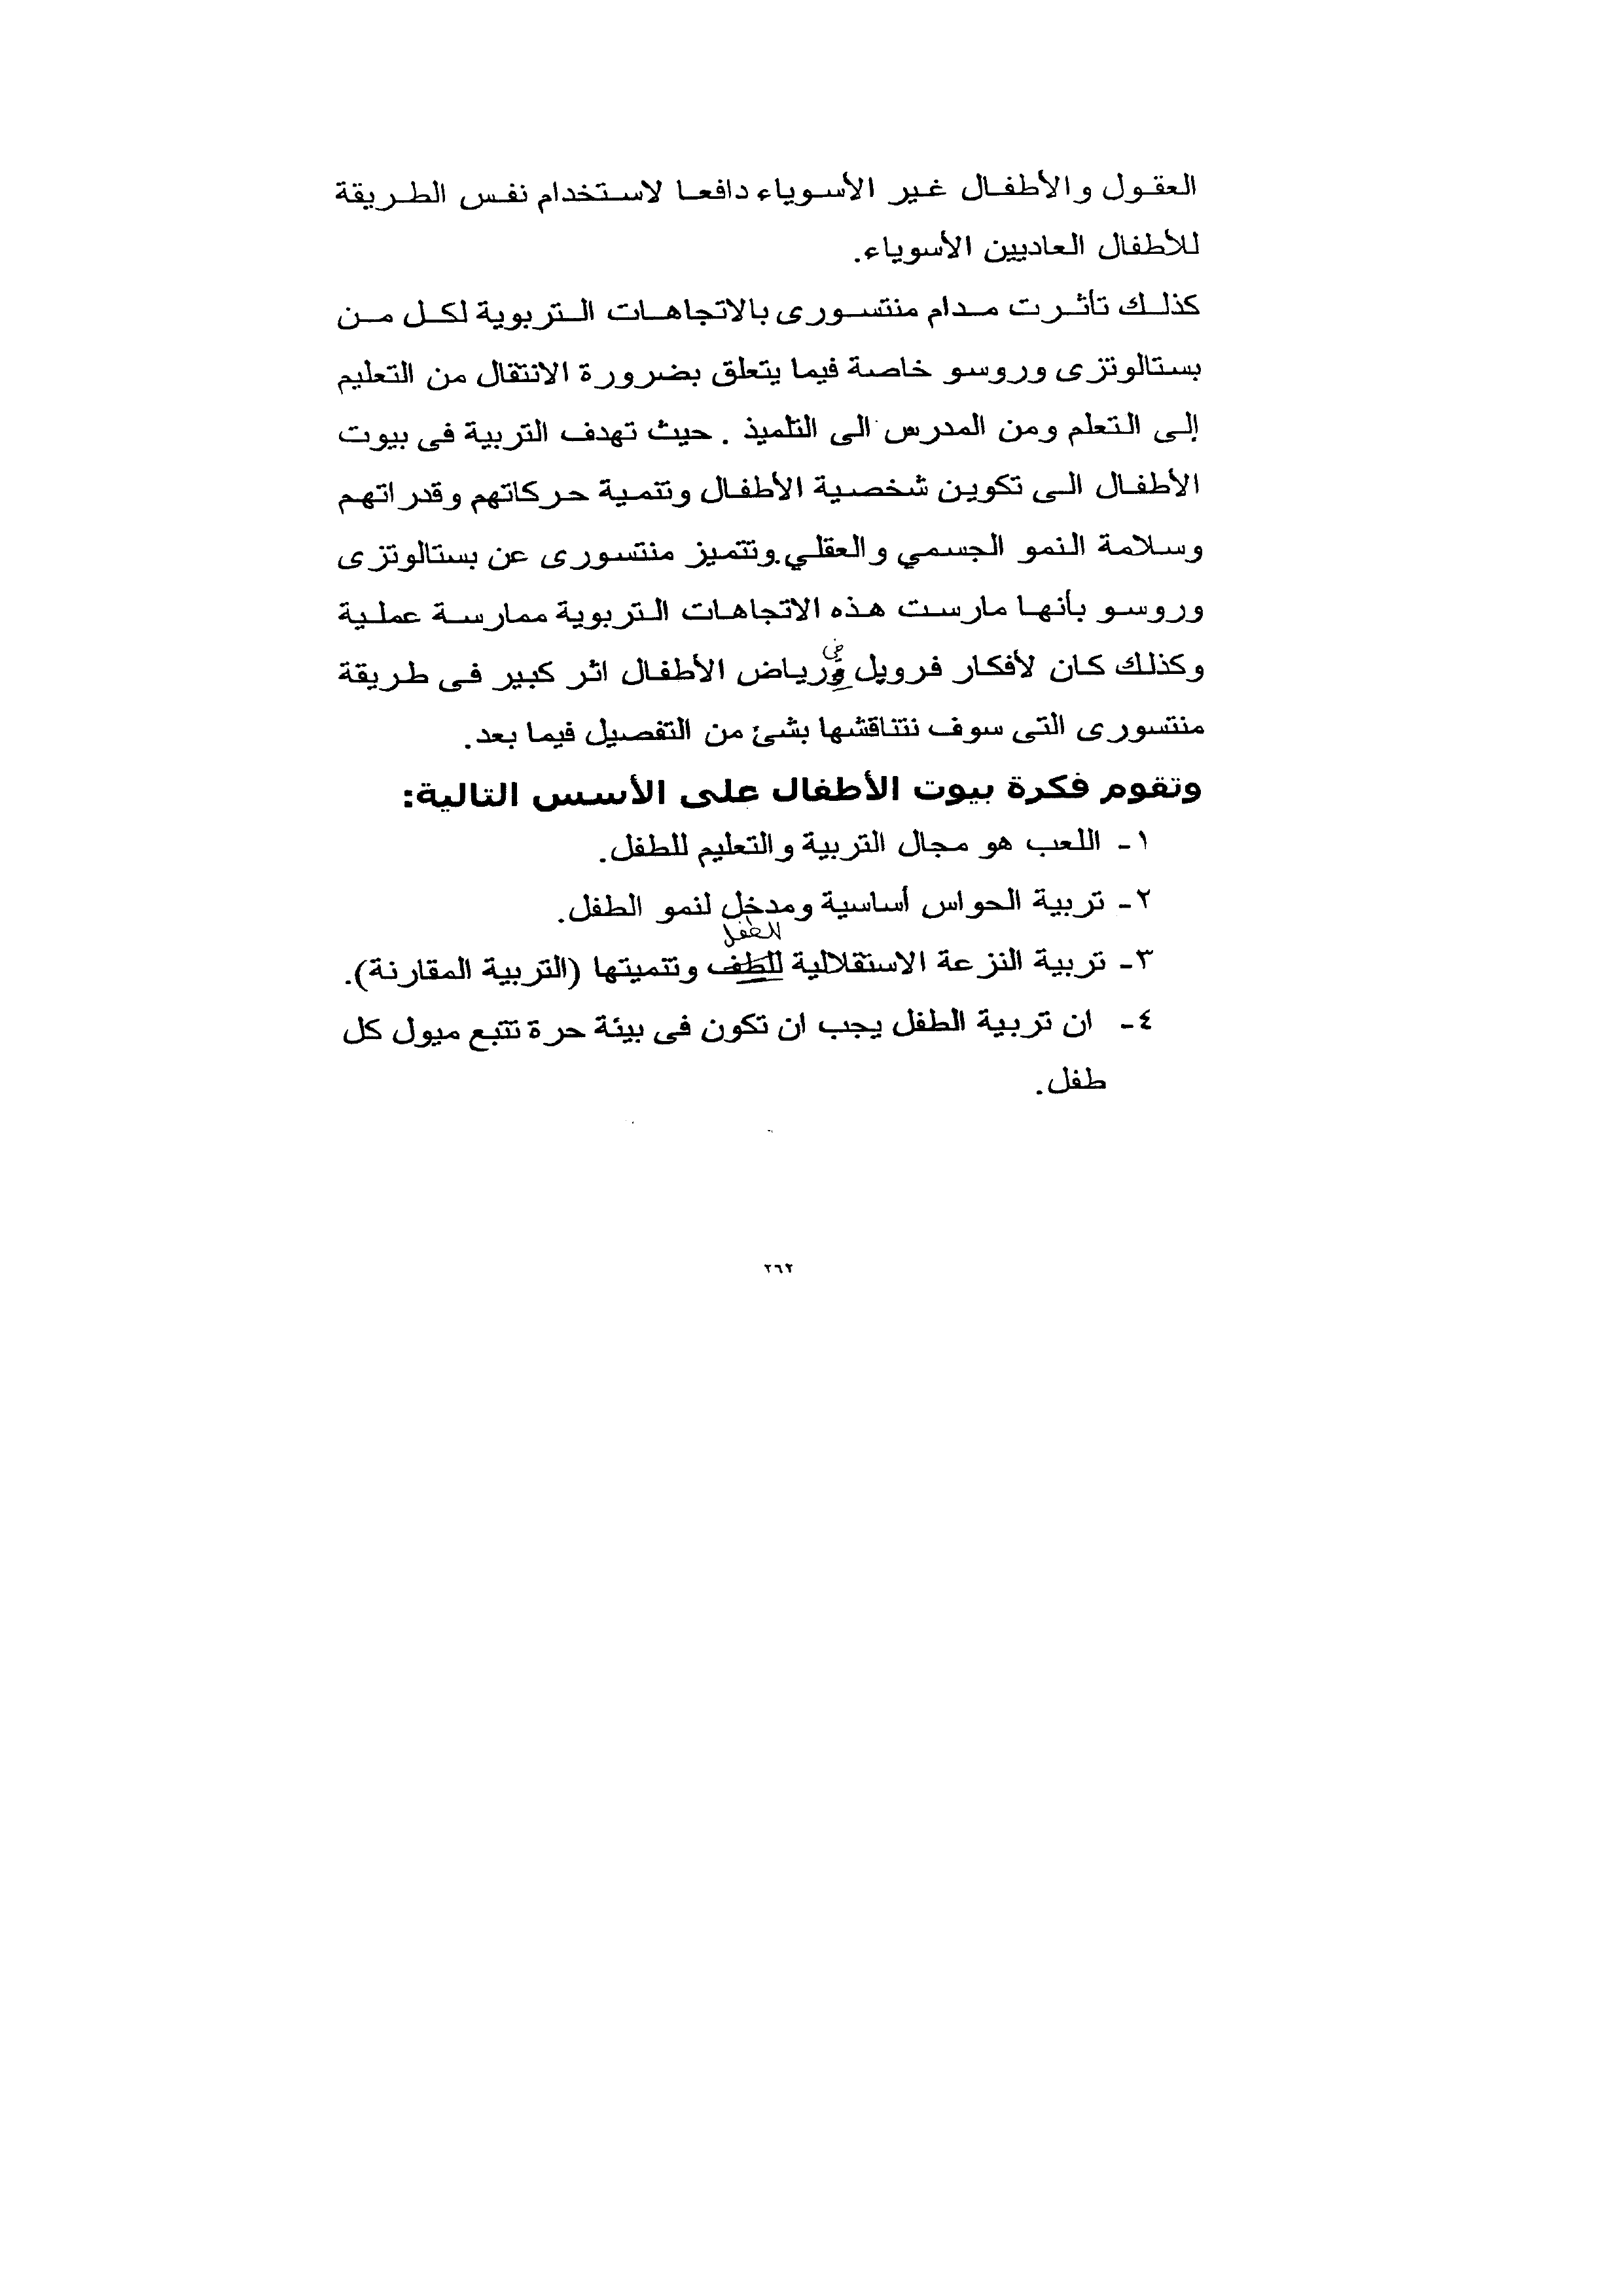 العقول والأطفال غير الأسوياء دافعا لاستخدام نفس الطريقة
للأطفال العاديين الأسوياء.
كذلك تأثرت مدام منتسورى بالاتجاهات التربوية لكل من
بستالوتزى وروسو خاصة فيما يتعلق بضرورة الانتقال من التعليم
إلى التعلم ومن المدرس الى التلميذ . حيث تهدف التربية فى بيوت
الأطفال الى تكوين شخصية الأطفال وتنمية حركاتهم وقدراتهم
وسلامة النمو الجسمي والعقلي.وتتميز منتسورى عن بستالوتزى
وروسو بأنها مارست هذه الاتجاهات التربوية ممارسة عملية
فى
وكذلك كان لأفكار فروبل ورياض الأطفال اثر كبير فى طريقة
منتسورى التى سوف نتناقشها بشئ من التفصيل فيما بعد.
وتقوم فكرة بيوت الأطفال على الأسس التالية:
١- اللعب هو مجال التربية والتعليم للطفل.
٢- تربية الحواس أساسية ومدخل لنمو الطفل.
للطفل
٣- تربية النزعة الاستقلالية للطف وتنميتها (التربية المقارنة).
٤- ان تربية الطفل يجب ان تكون فى بيئة حرة تتبع ميول كل
طفل.
٢٦٢